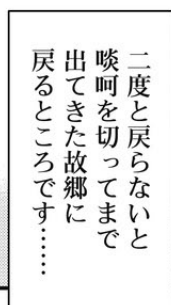 二度と戻らないと
啖呵を切ってまで
出てきた故郷に
戻るところです……